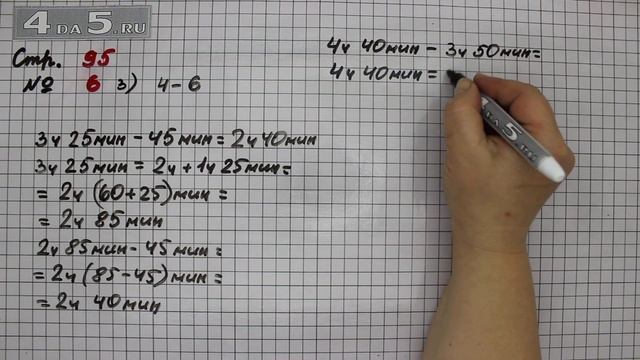 4DA5.RU
Стр. 95
№ 6 3) 4-6
3ч 25мин - 45мин = 2ч 40мин
3ч 25мин = 2ч + 1ч 25мин =
= 2ч (60+25) мин =
= 2ч 85 мин
2ч 85мин - 45мин =
= 2ч (85-45) мин =
= 2ч 40мин
4ч 40мин - 3ч 50мин =
4ч 40мин =
DA5.RU